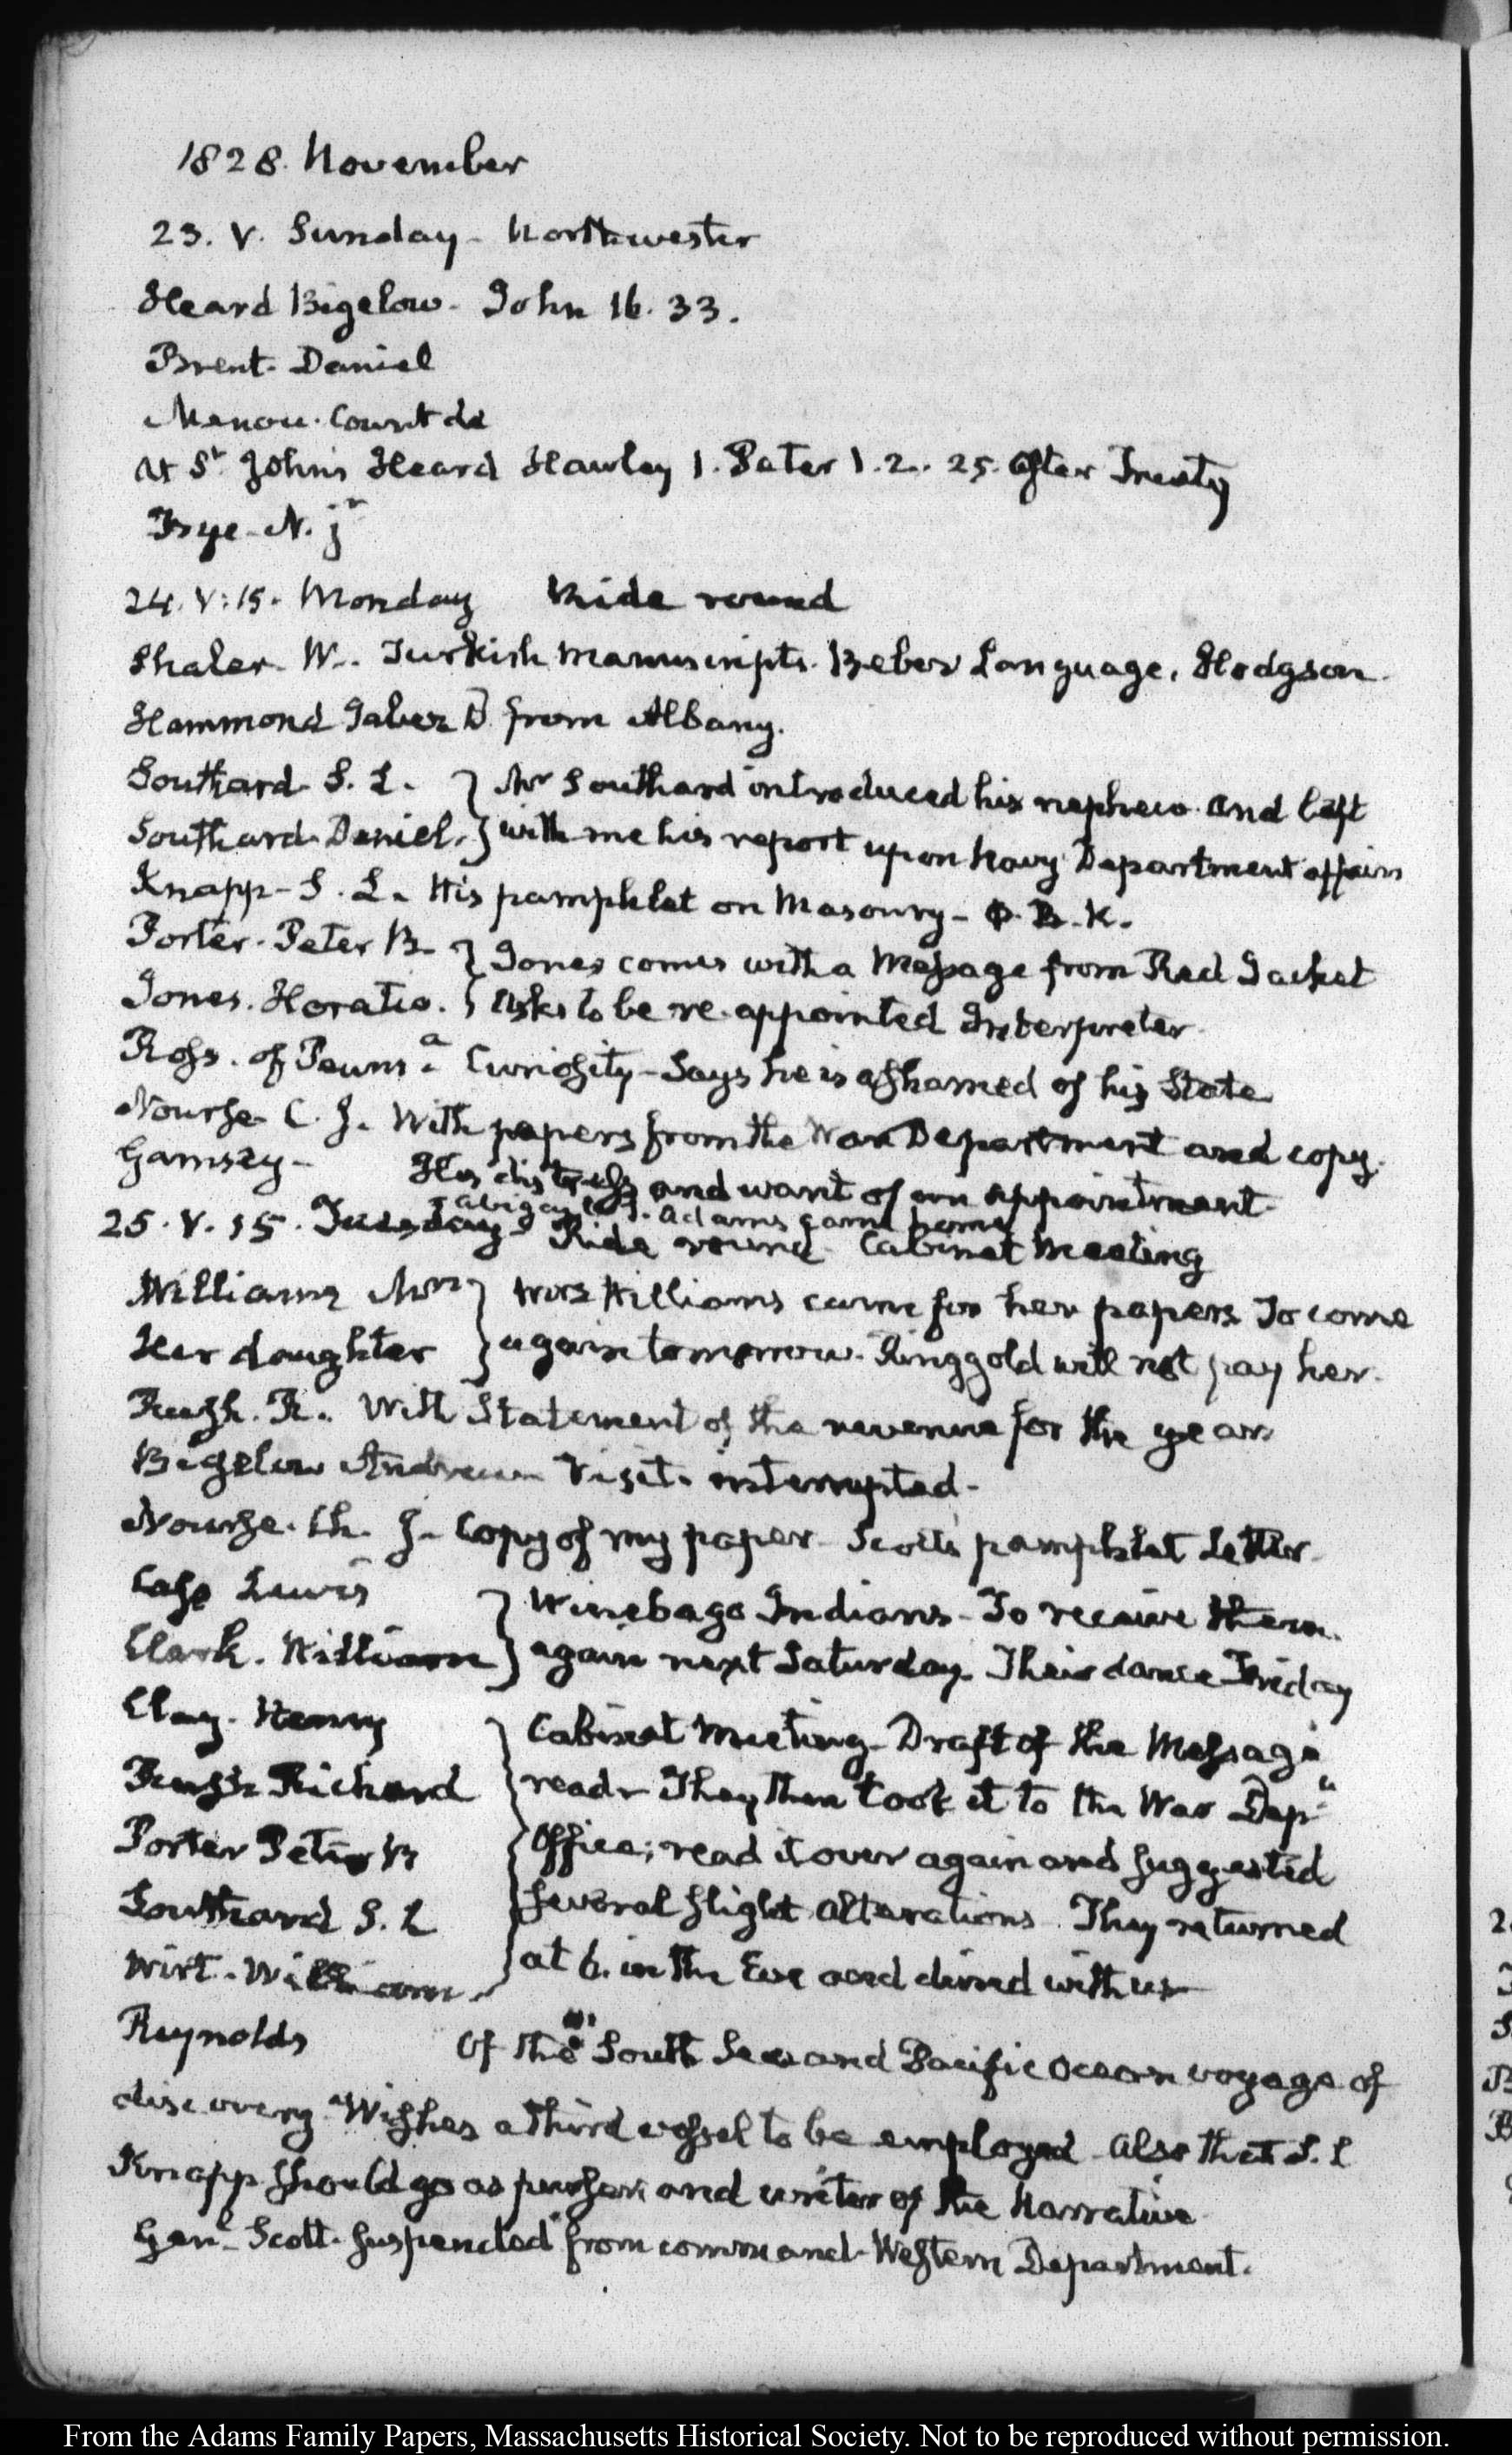 1828. November
23. V. Sunday - Northwester
Heard Bigelow - John 16. 33.
Brent. Daniel
Menou. Count de
At St. John's Heard Hawley 1. Peter 1. 2. 25. After Treaty
Frye - N. jr
24. V:15. Monday Ride round
Shaler. W. Turkish Manuscripts. Breber Language, Hodgson.
Hammond Jabez D from Albany.
Southard. S. L. } Mr Southard introduced his nephew and left
Southard Daniel. } with me his report upon Navy Department affairs
Knapp - S. L. His pamphlet on Masonry - Φ. B. K.
Porter. Peter B. } Jones comes with a Message from Red Jacket
Jones. Horatio. } Asks to be re-appointed Interpreter.
Ross. of Penns.a Curiosity - Says he is ashamed of his State
Nourse C. J. With papers from the War Department and copy.
Gamsey - His distress and want of an appointment.
Abigail S. Adams came home
25. V. 15. Tuesday Ride round. Cabinet Meeting
Williams Mrs } Mrs Williams came for her papers To come
Her daughter } again tomorrow. Ringgold will not pay her.
Rush. R. With Statement of the revenue for the year
Bigelow Andrew Visit. interrupted -
Nourse. Ch. J. Copy of my paper - Scott's pamphlet Letter.
Cass Lewis } Winebago Indians - To receive them
Clark. William } again next Saturday. Their dance Friday
Clay. Henry } Cabinet Meeting - Draft of the Message
Rush Richard } read - They then took it to the War Dep.t
Porter Peter B } Office; read it over again and suggested
Southard S. L } several slight alterations. They returned
Wirt. William. } at 6. in the Eve and dined with us
Reynolds Of the South Sea and Pacific Ocean voyage of
discovery. Wishes a third vessel to be employed - Also that S. L
Knapp should go as purser and writer of the Narrative.
Genl Scott. suspended from command. Western Department.
From the Adams Family Papers, Massachusetts Historical Society. Not to be reproduced without permission.